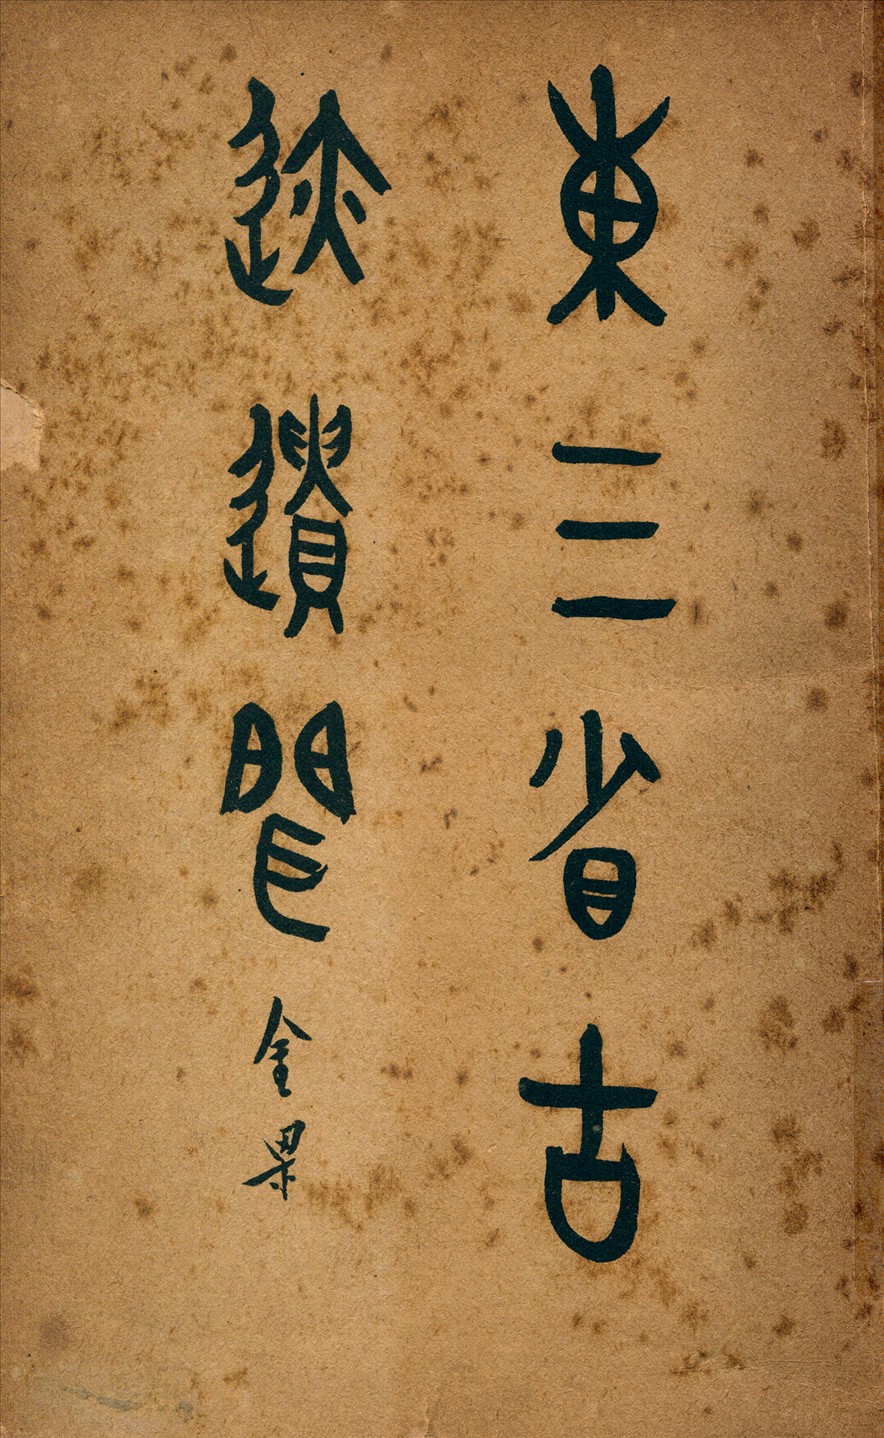 東三省古
迹遺聞
金梁